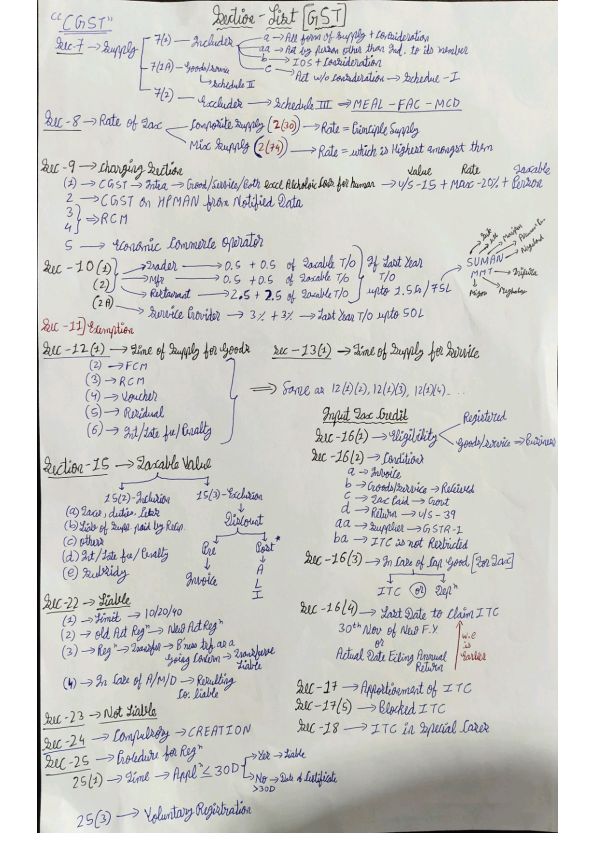 Section - List [GST]
"CGST"
Sec-7 → Supply
7(1) - Includes
a → All form of Supply + Consideration
aa → Act by person other than Ind. to its member
b → IOS + Consideration
c → Act w/o consideration → Schedule - I
7(1A) - Goods/service
→ Schedule II
7(2) → Excludes → Schedule III ⇒ MEAL - FAC - MCD
Sec-8 → Rate of Tax
Composite Supply (2(30)) → Rate = Principle Supply
Mix Supply (2(74)) → Rate = which is Highest amongst them
Sec-9 → Charging Section
Value Rate Taxable
(1) → CGST → Intra → Good/Service/Both excl Alcholoic for human → u/s-15 + Max-20% + Person
2 → CGST on HPMAN from Notified Data
3
4 ⇒ RCM
5 → Economic Commerce Operator
Sec-10(1)
(2)
(2A)
→ Trader → 0.5 + 0.5 of Taxable T/O
→ Mfr → 0.5 + 0.5 of Taxable T/O
→ Restaurant → 2.5 + 2.5 of Taxable T/O
If Last Year
T/O
upto 1.5Cr/75L
SUMAN
MMT
Sikkim
Manipur
Arunachal
Nagaland
Tripura
Meghalaya
Mizoram
→ Service Provider → 3% + 3% → Last Year T/O upto 50L
Sec-11] Exemption
Sec-12(1) → Time of Supply for Goods
(2) → FCM
(3) → RCM
(4) → Voucher
(5) → Residual
(6) → Int/Late fee/Penalty
Sec-13(1) → Time of Supply for Service
⇒ Same as 12(1)(2), 12(1)(3), 12(1)(4). . .
Section-15 → Taxable Value
15(2) - Inclusion
(a) Taxes, duties, Cess
(b) Liab of Supp paid by Recp.
(c) others
(d) Int/Late fee/Penalty
(e) Subsidy
15(3) - Exclusion
Discount
Pre
Invoice
Post *
A
L
I
Sec-22 → Liable
(1) → Limit → 10/20/40
(2) → Old Act Regn → New Act Regn
(3) → Regn → Transfer → B'ness trf as a
Going Concern → Transferee
Liable
(4) → In Case of A/M/D → Resulting
Co. liable
Sec-23 → Not Liable
Sec-24 → Compulsory → CREATION
Sec-25 → Procedure for Regn
25(1) → Time → Appln ≤ 30D
Yes → Liable
No → Date of Certificate
>30D
25(3) → Voluntary Registration
Input Tax Credit
Sec-16(1) → Eligiblity
Registered
Goods/service → Business
Sec-16(2) → Conditions
a → Invoice
b → Goods/Service → Received
c → Tax Paid → Govt
d → Return → u/s - 39
aa → Supplier → GSTR-1
ba → ITC is not Restricted
Sec-16(3) → In Case of Cap Good [For Tax]
ITC (or) Depn
Sec-16(4) → Last Date to Claim ITC
30th Nov of New F.Y.
or
Actual Date Filing Annual
Return
w.e
is
Earlier
Sec-17 → Apportionment of ITC
Sec-17(5) → Blocked ITC
Sec-18 → ITC in Special Cases